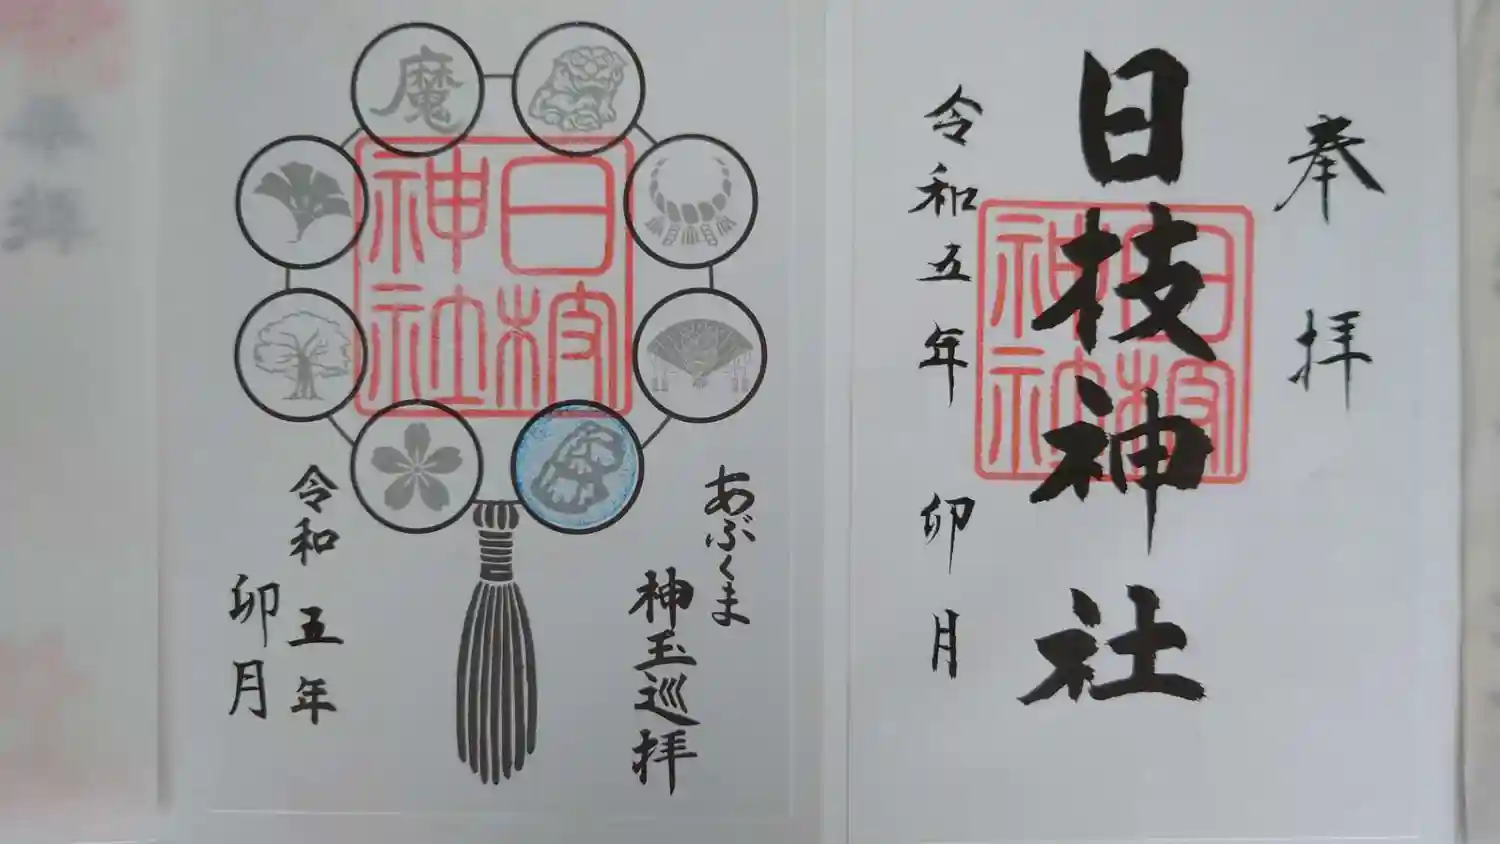 奉拝
日枝神社
日枝神社
令和五年 卯月
あぶくま
神玉巡拝
魔
日枝神社
令和五年
卯月
奉拝